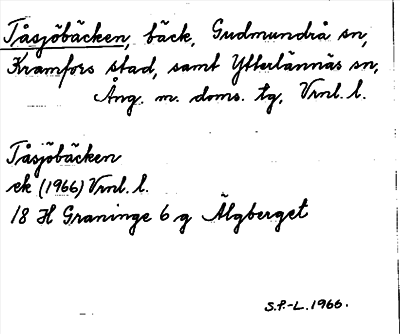 Tåsjöbäcken, bäck, Gudmundrå sn,
Kramfors stad, samt Ytterlännäs sn,
Ång. m. doms. tg, Vrnl. l.
Tåsjöbäcken
ek (1966) Vrnl. l.
18 H Graninge 6 g Älgberget
S.P.-L. 1966.